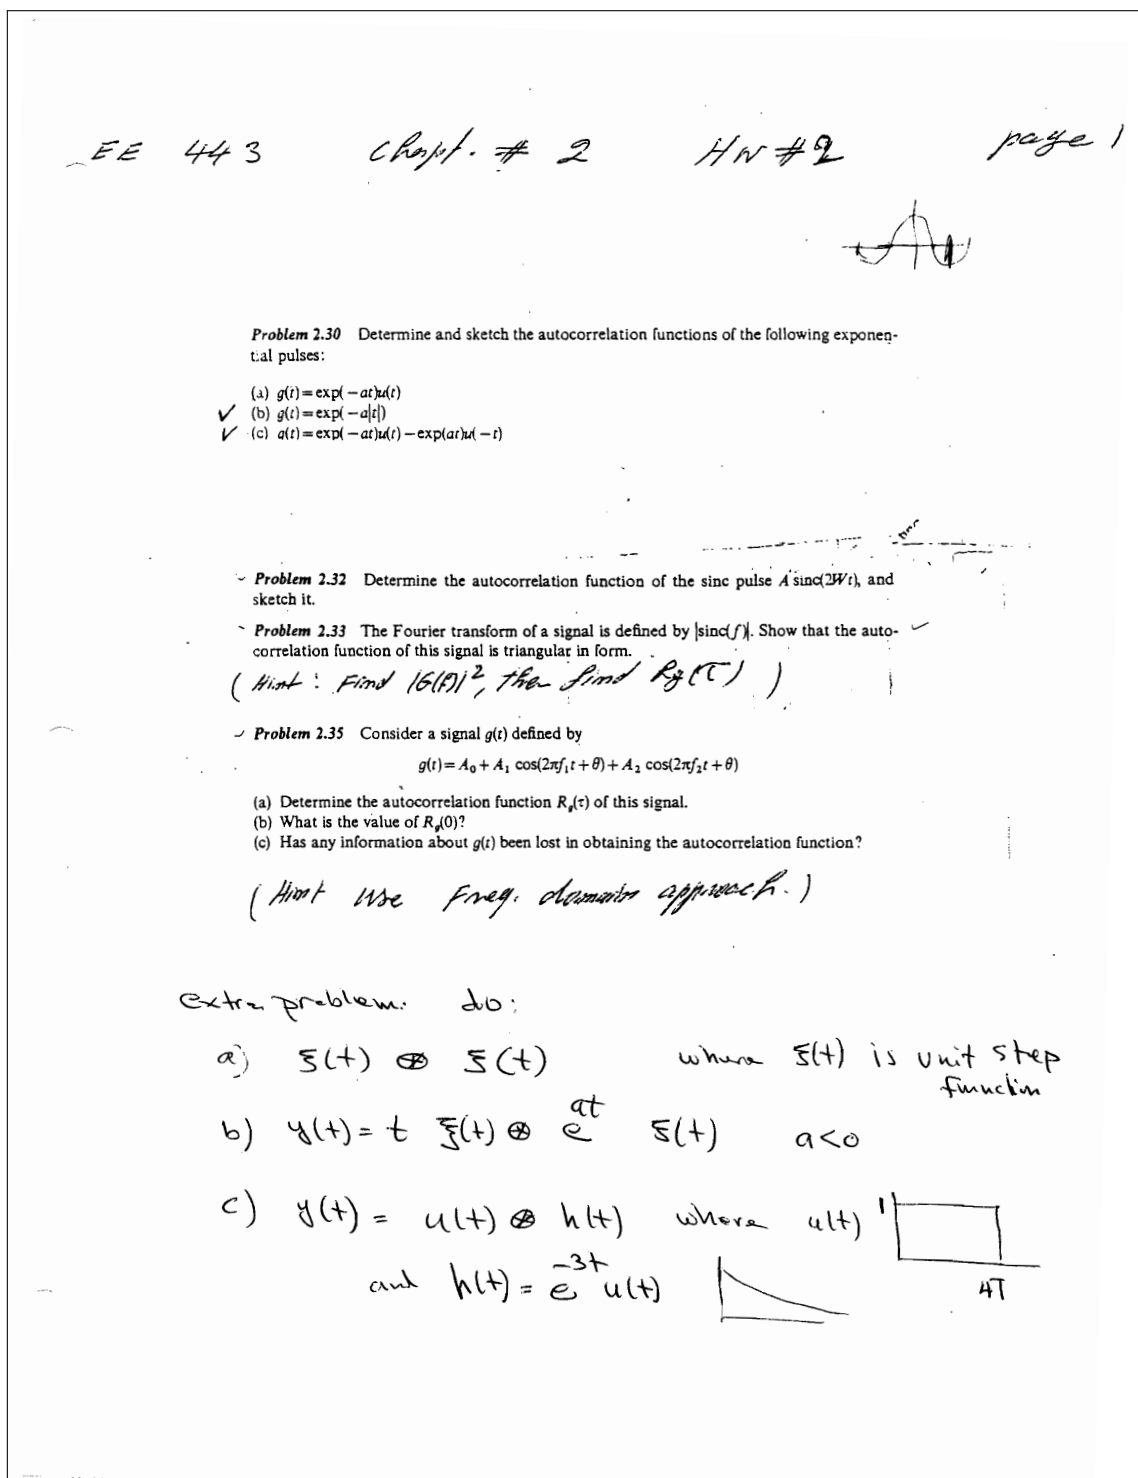 EE 443 Chapt. # 2 HW #2 page 1
Problem 2.30 Determine and sketch the autocorrelation functions of the following exponen-
tial pulses:
(a) g(t)=exp(−at)u(t)
✓ (b) g(t)=exp(−a|t|)
✓ (c) g(t)=exp(−at)u(t)−exp(at)u(−t)
Problem 2.32 Determine the autocorrelation function of the sinc pulse A sinc(2Wt), and
sketch it.
Problem 2.33 The Fourier transform of a signal is defined by |sinc(f)|. Show that the auto- ✓
correlation function of this signal is triangular in form.
(Hint: Find |G(f)|², then find Rg(τ))
Problem 2.35 Consider a signal g(t) defined by
g(t)=A₀+A₁ cos(2πf₁t+θ)+A₂ cos(2πf₂t+θ)
(a) Determine the autocorrelation function R_g(τ) of this signal.
(b) What is the value of R_g(0)?
(c) Has any information about g(t) been lost in obtaining the autocorrelation function?
(Hint Use Freq. domain approach.)
extra problem. do:
a) ξ(t) ⊗ ξ(t) where ξ(t) is unit step
function
b) y(t) = t ξ(t) ⊗ e^{at} ξ(t) a<0
c) y(t) = u(t) ⊗ h(t) where u(t) 1
and h(t) = e^{-3t} u(t) 4T